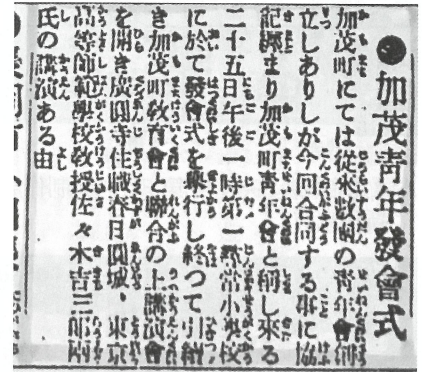 ●加茂青年發會式
加茂町にては從來數團の靑年會併
立しありしが今回合同する事に協
議纒まり加茂町靑年會と稱し來る
二十五日午後一時第一尋常小學校
に於て發會式を擧行し終つて引續
き加茂町敎育會と聯合の上講演會
を開き廣圓寺住職春日圓城、東京
高等師範學校敎授佐々木吉三郎兩
氏の講演ある由